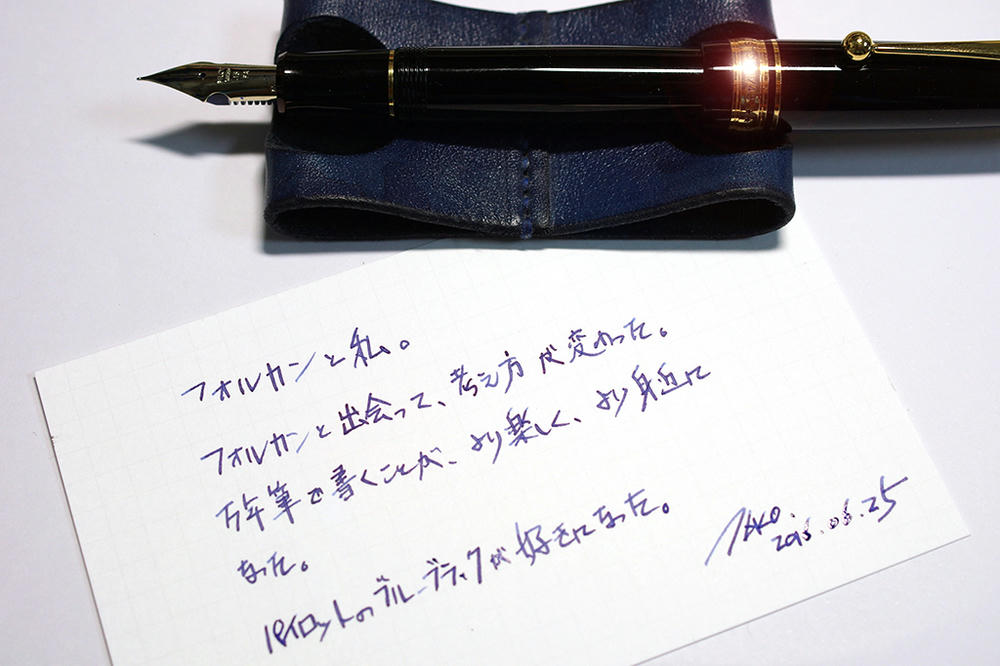 フォルカンと私。
フォルカンと出会って、考え方が変わった。
万年筆で書くことが、より楽しく、より身近に
なった。
パイロットのブルーブラックが好きになった。